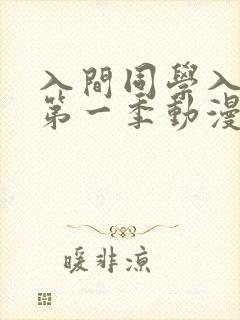 入間同學入
第一季動漫
暖非涼